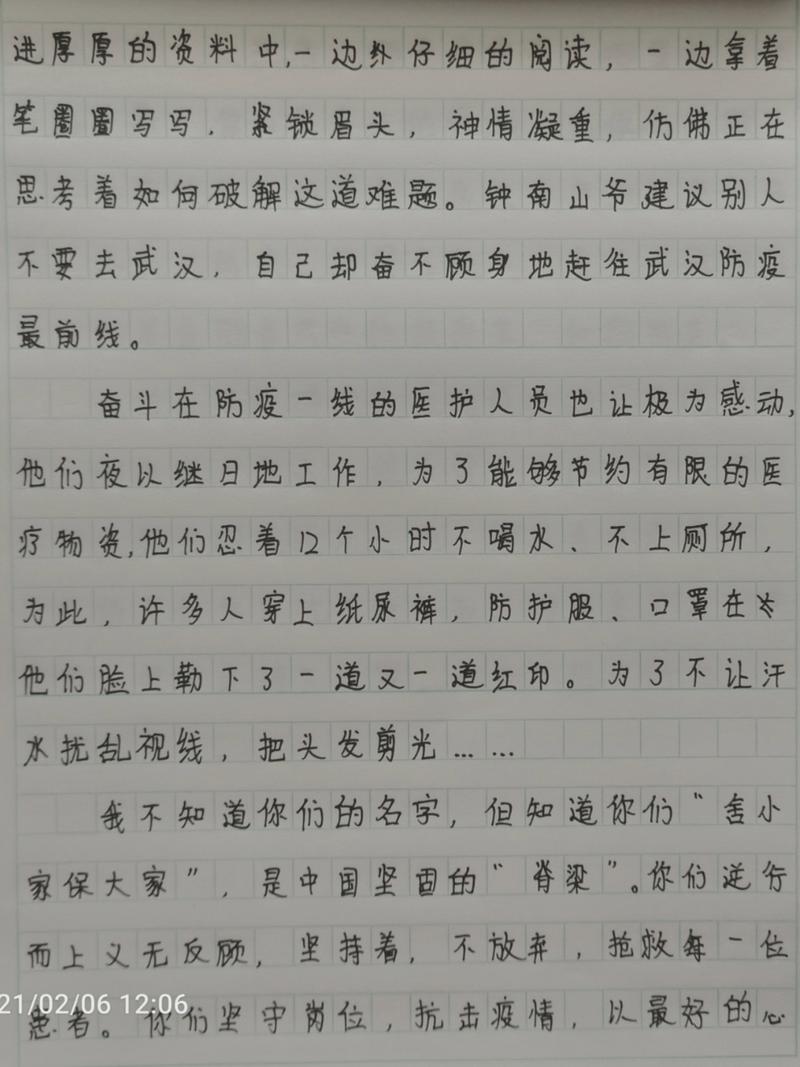 进厚厚的资料中,一边外仔细的阅读，一边拿着
笔圈圈写写．紧锁眉头，神情凝重，仿佛正在
思考着如何破解这道难题。钟南山爷建议别人
不要去武汉．自己却奋不顾身地赶往武汉防疫
最前线。
奋斗在防疫一线的医护人员也让极为感动，
他们夜以继日地工作．为了能够节约有限的医
疗物资，他们忍着12个小时不喝水、不上厕所，
为此，许多人穿上纸尿裤，防护服、口罩在
他们脸上勒下了一道又一道红印。为了不让汗
水扰乱视线，把头发剪光……
我不知道你们的名字，但知道你们“舍小
家保大家”，是中国坚固的“脊梁”。你们逆行
而上义无反顾，坚持着，不放弃，抢救每一位
患者。你们坚守岗位，抗击疫情，以最好的心
21/02/06 12:06